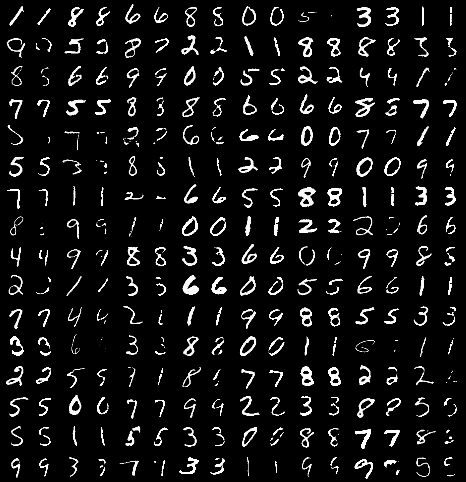 1 1 8 8 6 6 8 8 0 0 5 3 3 1 1
9 5 5 8 2 2 1 1 8 8 8 8 3 3
8 5 6 6 9 9 0 0 5 5 2 2 4 4 1
7 7 5 5 8 3 8 8 6 6 6 6 8 7 7
7 7 6 6 6 0 0 7 7 1 1
5 5 3 8 8 1 1 2 2 9 9 0 0 9 9
7 7 1 1 2 6 6 5 5 8 8 1 1 3 3
8 9 9 1 1 0 0 1 1 2 2 2 6 6
4 4 9 9 8 8 3 3 6 6 0 9 9 8 5
2 1 1 3 3 6 6 0 0 5 5 6 6 1 1
7 7 4 2 1 1 1 9 9 8 8 5 5 3 3
3 3 6 3 3 8 8 0 0 1 1 1 1
2 2 5 5 9 1 8 7 7 8 8 2 2 2
5 5 0 0 7 7 9 9 2 2 3 3 8 5 5
5 5 1 1 5 5 3 3 0 0 8 8 7 7 8
9 9 3 3 7 1 3 3 1 1 9 9 9 5